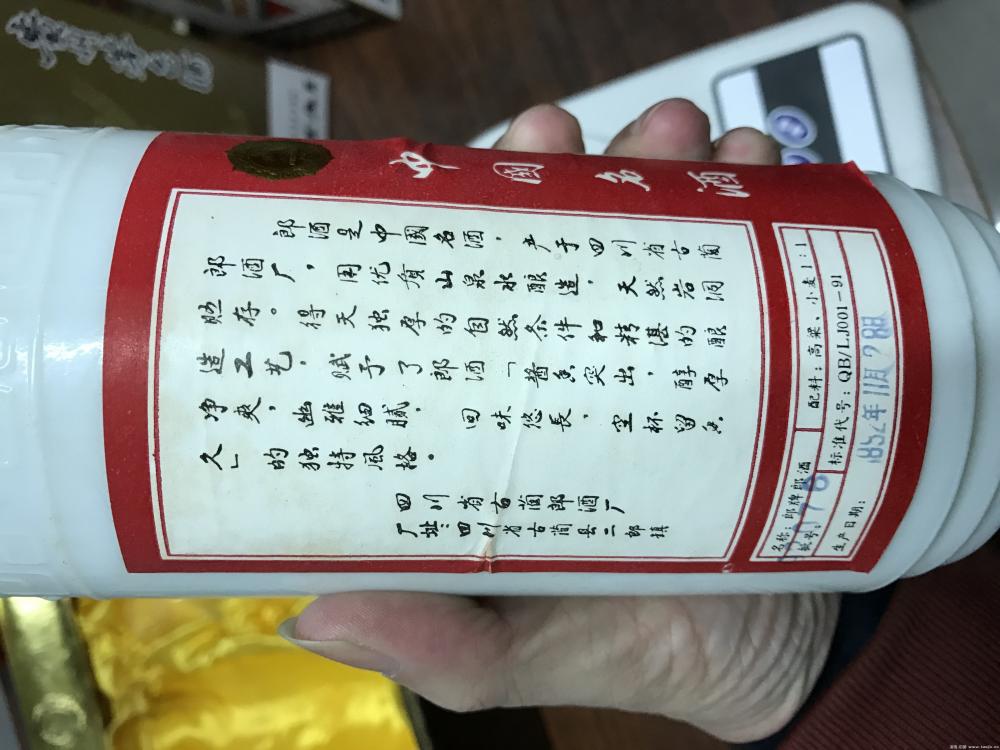 中國名酒
郎酒是中國名酒，产于四川省古蔺
郎酒厂，用优质山泉水酿造，天然岩洞
贮存。得天独厚的自然条件和精湛的酿
造工艺，赋予了郎酒「酱香突出，醇厚
净爽，幽雅细腻，回味悠長，空杯留香
久」的独特风格。
四川省古蔺郎酒厂
厂址：四川省古蔺县二郎镇
名称：郎牌郎酒
配料：高粱、小麦1：1
标准代号：QB/LJ001－91
生产日期：